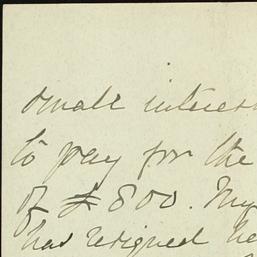 small interest
to pay for the
of £800. My
has resigned he